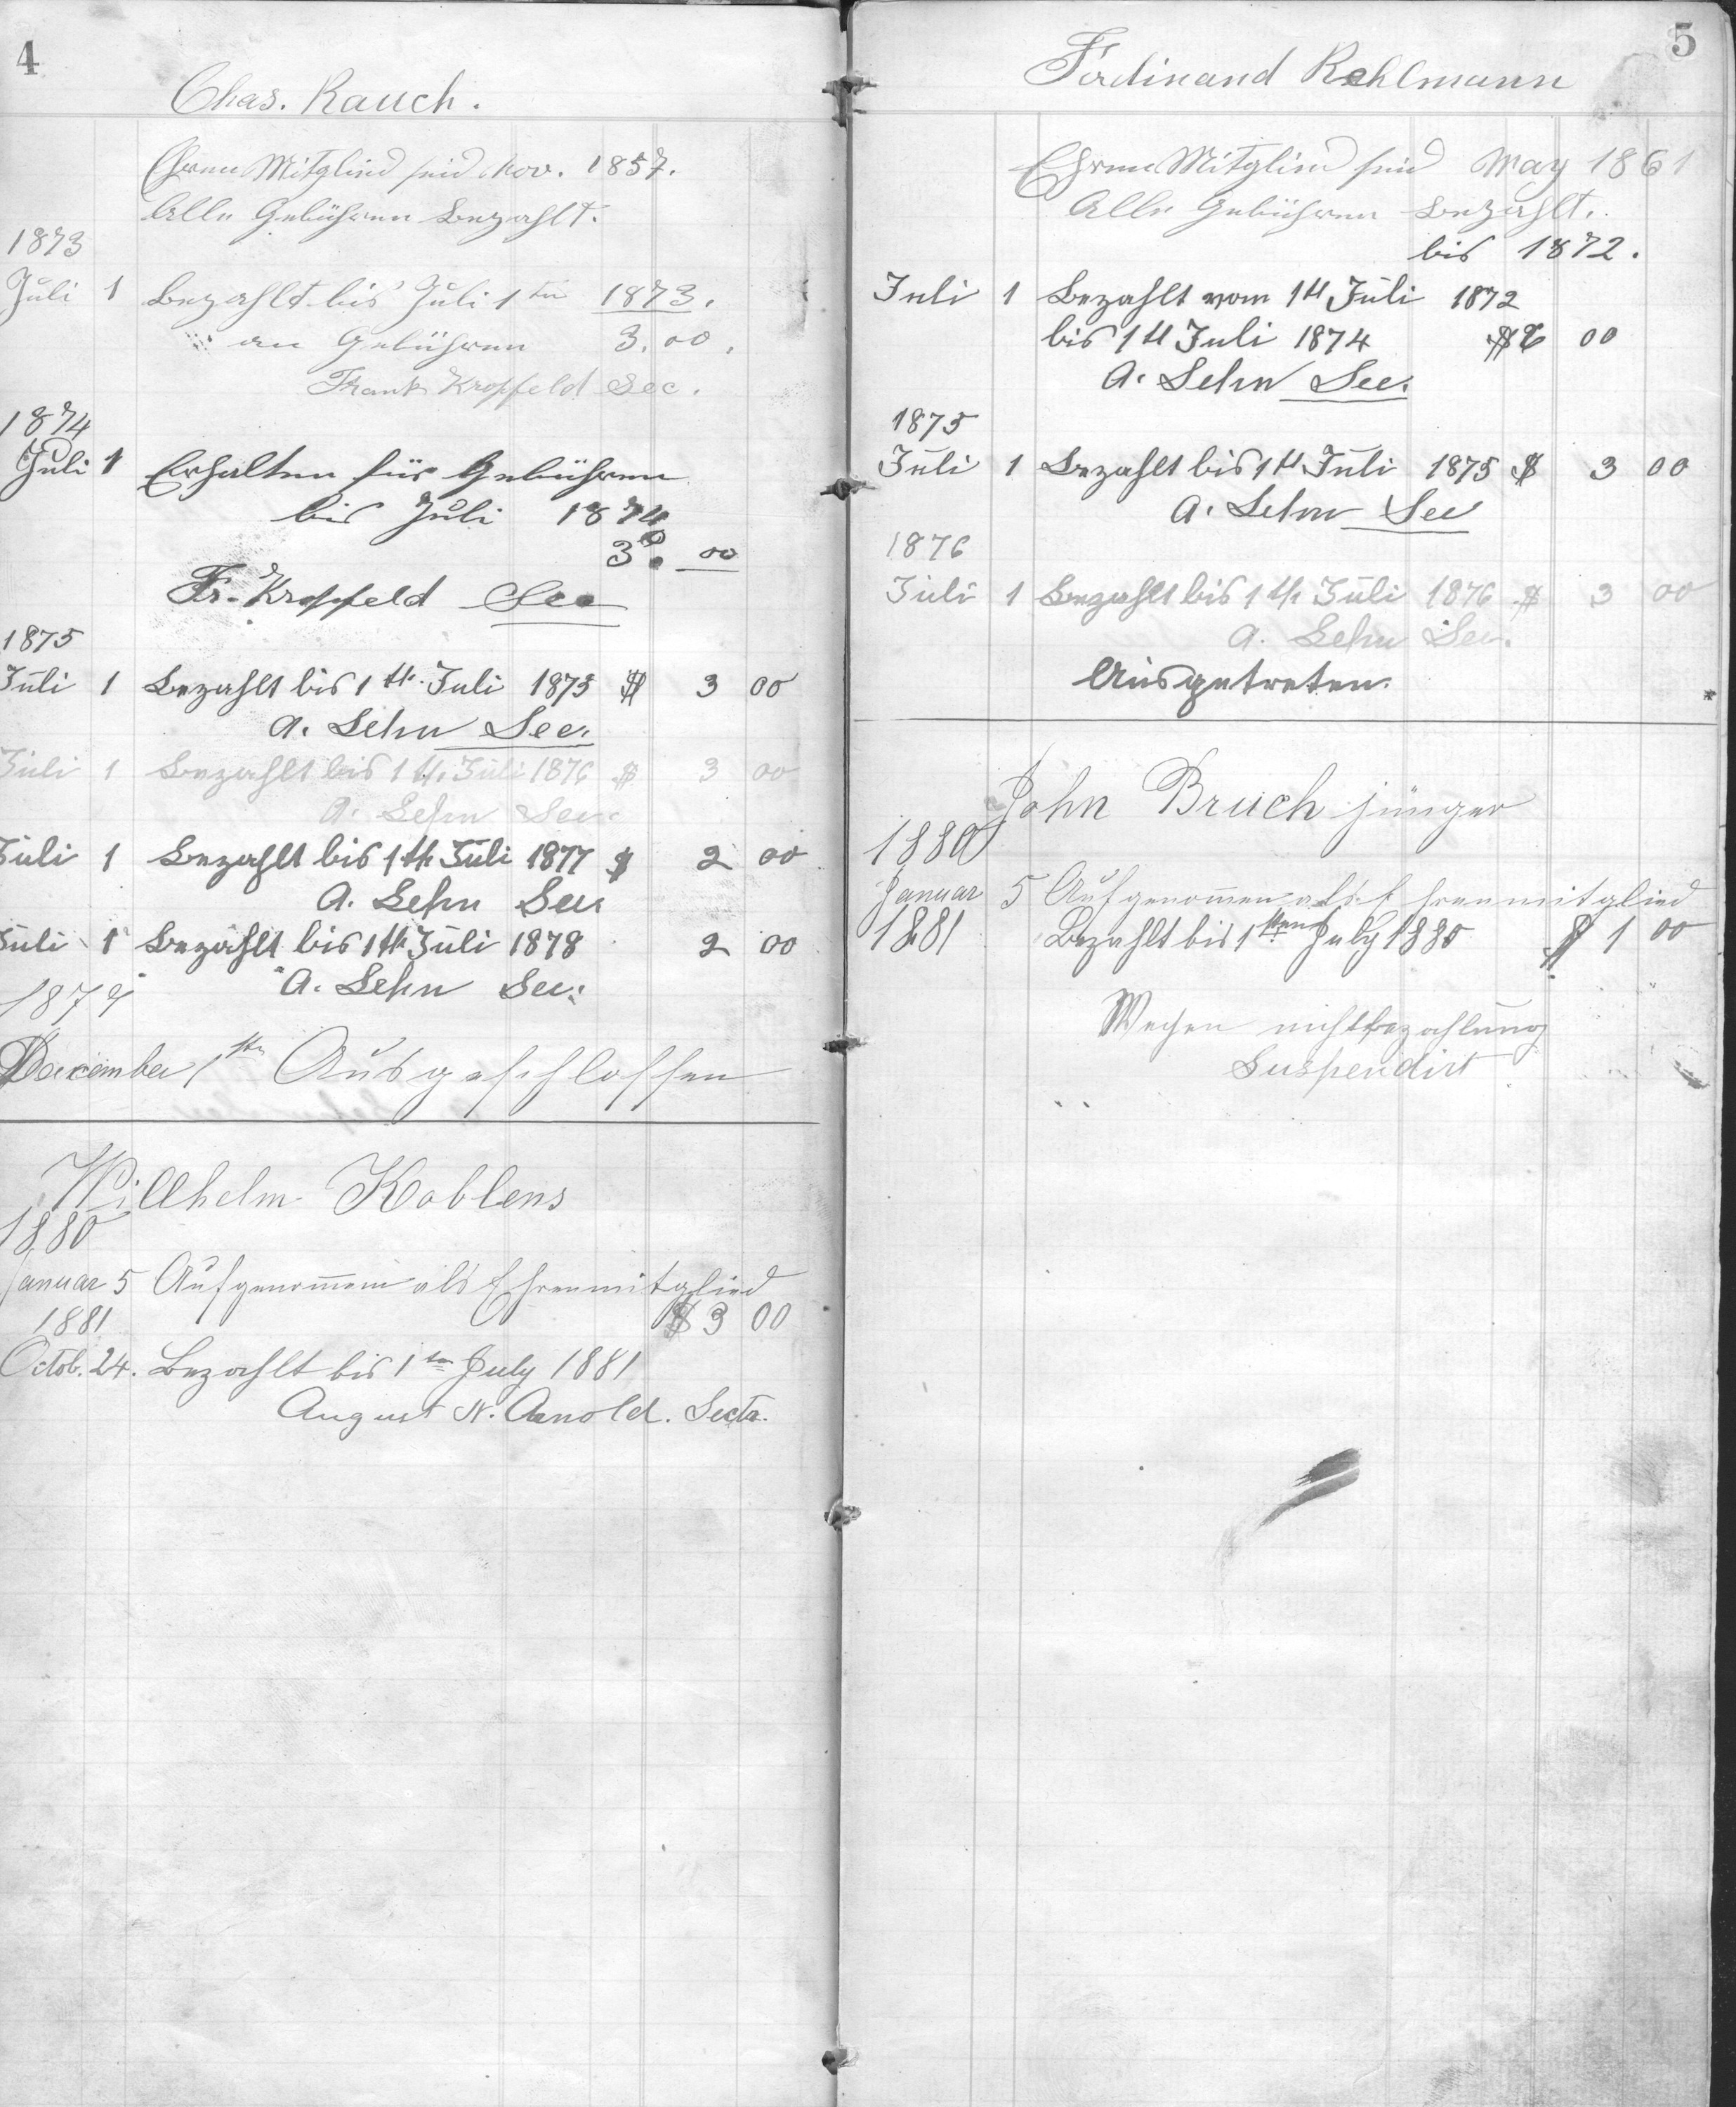 4
Chas. Rauch.
Ehren Mitglied seid Nov. 1857.
Alle Gebühren Bezahlt.
1873
Juli 1 Bezahlt bis Juli 1ten 1873.
an Gebühren 3.00.
Frank Kropfeld Sec.
1874
Juli 1 Erhalten für Gebühren
bis Juli 1874
3.00
Fr. Kropfeld Sec
1875
Juli 1 Bezahlt bis 1th Juli 1875 $ 3 00
A. Lehn Sec.
Juli 1 Bezahlt bis 1th Juli 1876 $ 3 00
A. Lehn Sec.
Juli 1 Bezahlt bis 1th Juli 1877 $ 2 00
A. Lehn Sec.
Juli 1 Bezahlt bis 1th Juli 1878 2 00
A. Lehn Sec.
1879
December 1ten Ausgeschlossen
Willhelm Koblens
1880
Januar 5 Aufgenom̄en als Ehrenmitglied
1881 $ 3 00
Octob. 24. Bezahlt bis 1ten July 1881
August N. Arnold. Sectr.
5
Ferdinand Rehlmann
Ehren Mitglied seid May 1861
Alle Gebühren Bezahlt.
bis 1872.
Juli 1 Bezahlt vom 1th Juli 1872
bis 1th Juli 1874 $6 00
A. Lehn Sec.
1875
Juli 1 Bezahlt bis 1th Juli 1875 $ 3 00
A. Lehn Sec
1876
Juli 1 Bezahlt bis 1th Juli 1876 $ 3 00
A. Lehn Sec.
Ausgetreten.
John Bruch jünger
1880
Januar 5 Aufgenom̄en als Ehrenmitglied
1881 Bezahlt bis 1stens July 1880 $ 1 00
Wegen nichtbezahlung
Suspendirt